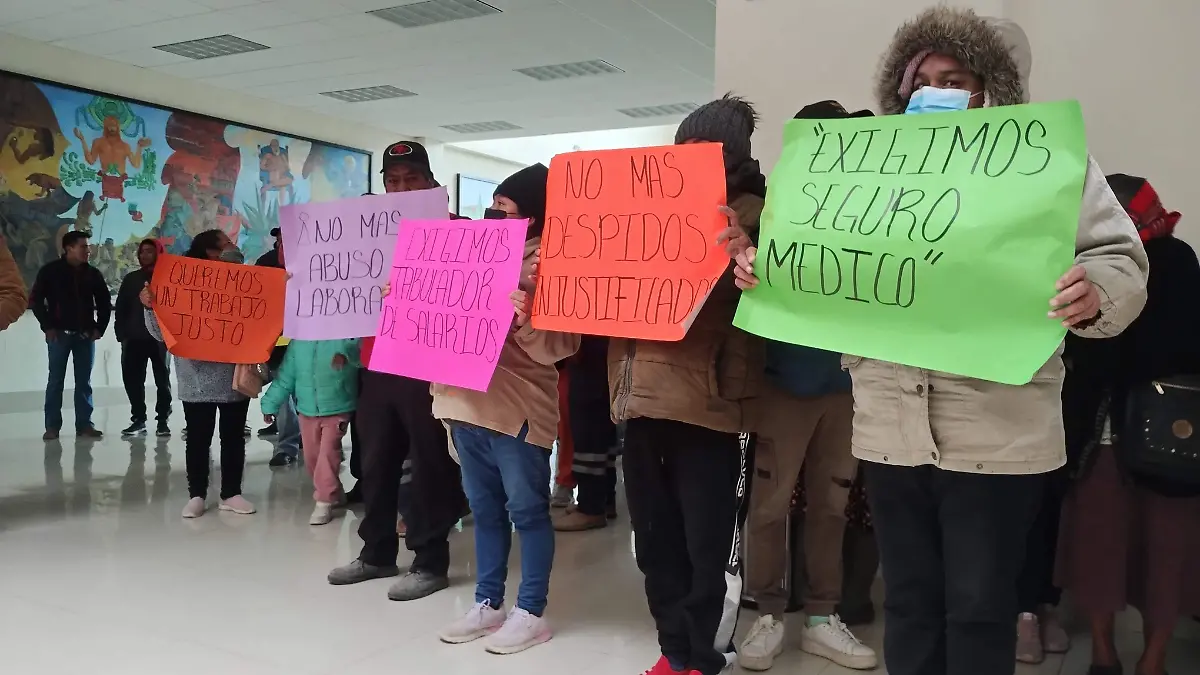 QUEREMOS
UN TRABAJO
JUSTO
NO MAS
ABUSO
LABORAL
EXIGIMOS
TABULADOR
DE SALARIOS
NO MAS
DESPIDOS
INJUSTIFICADOS
"EXIGIMOS
SEGURO
MEDICO"